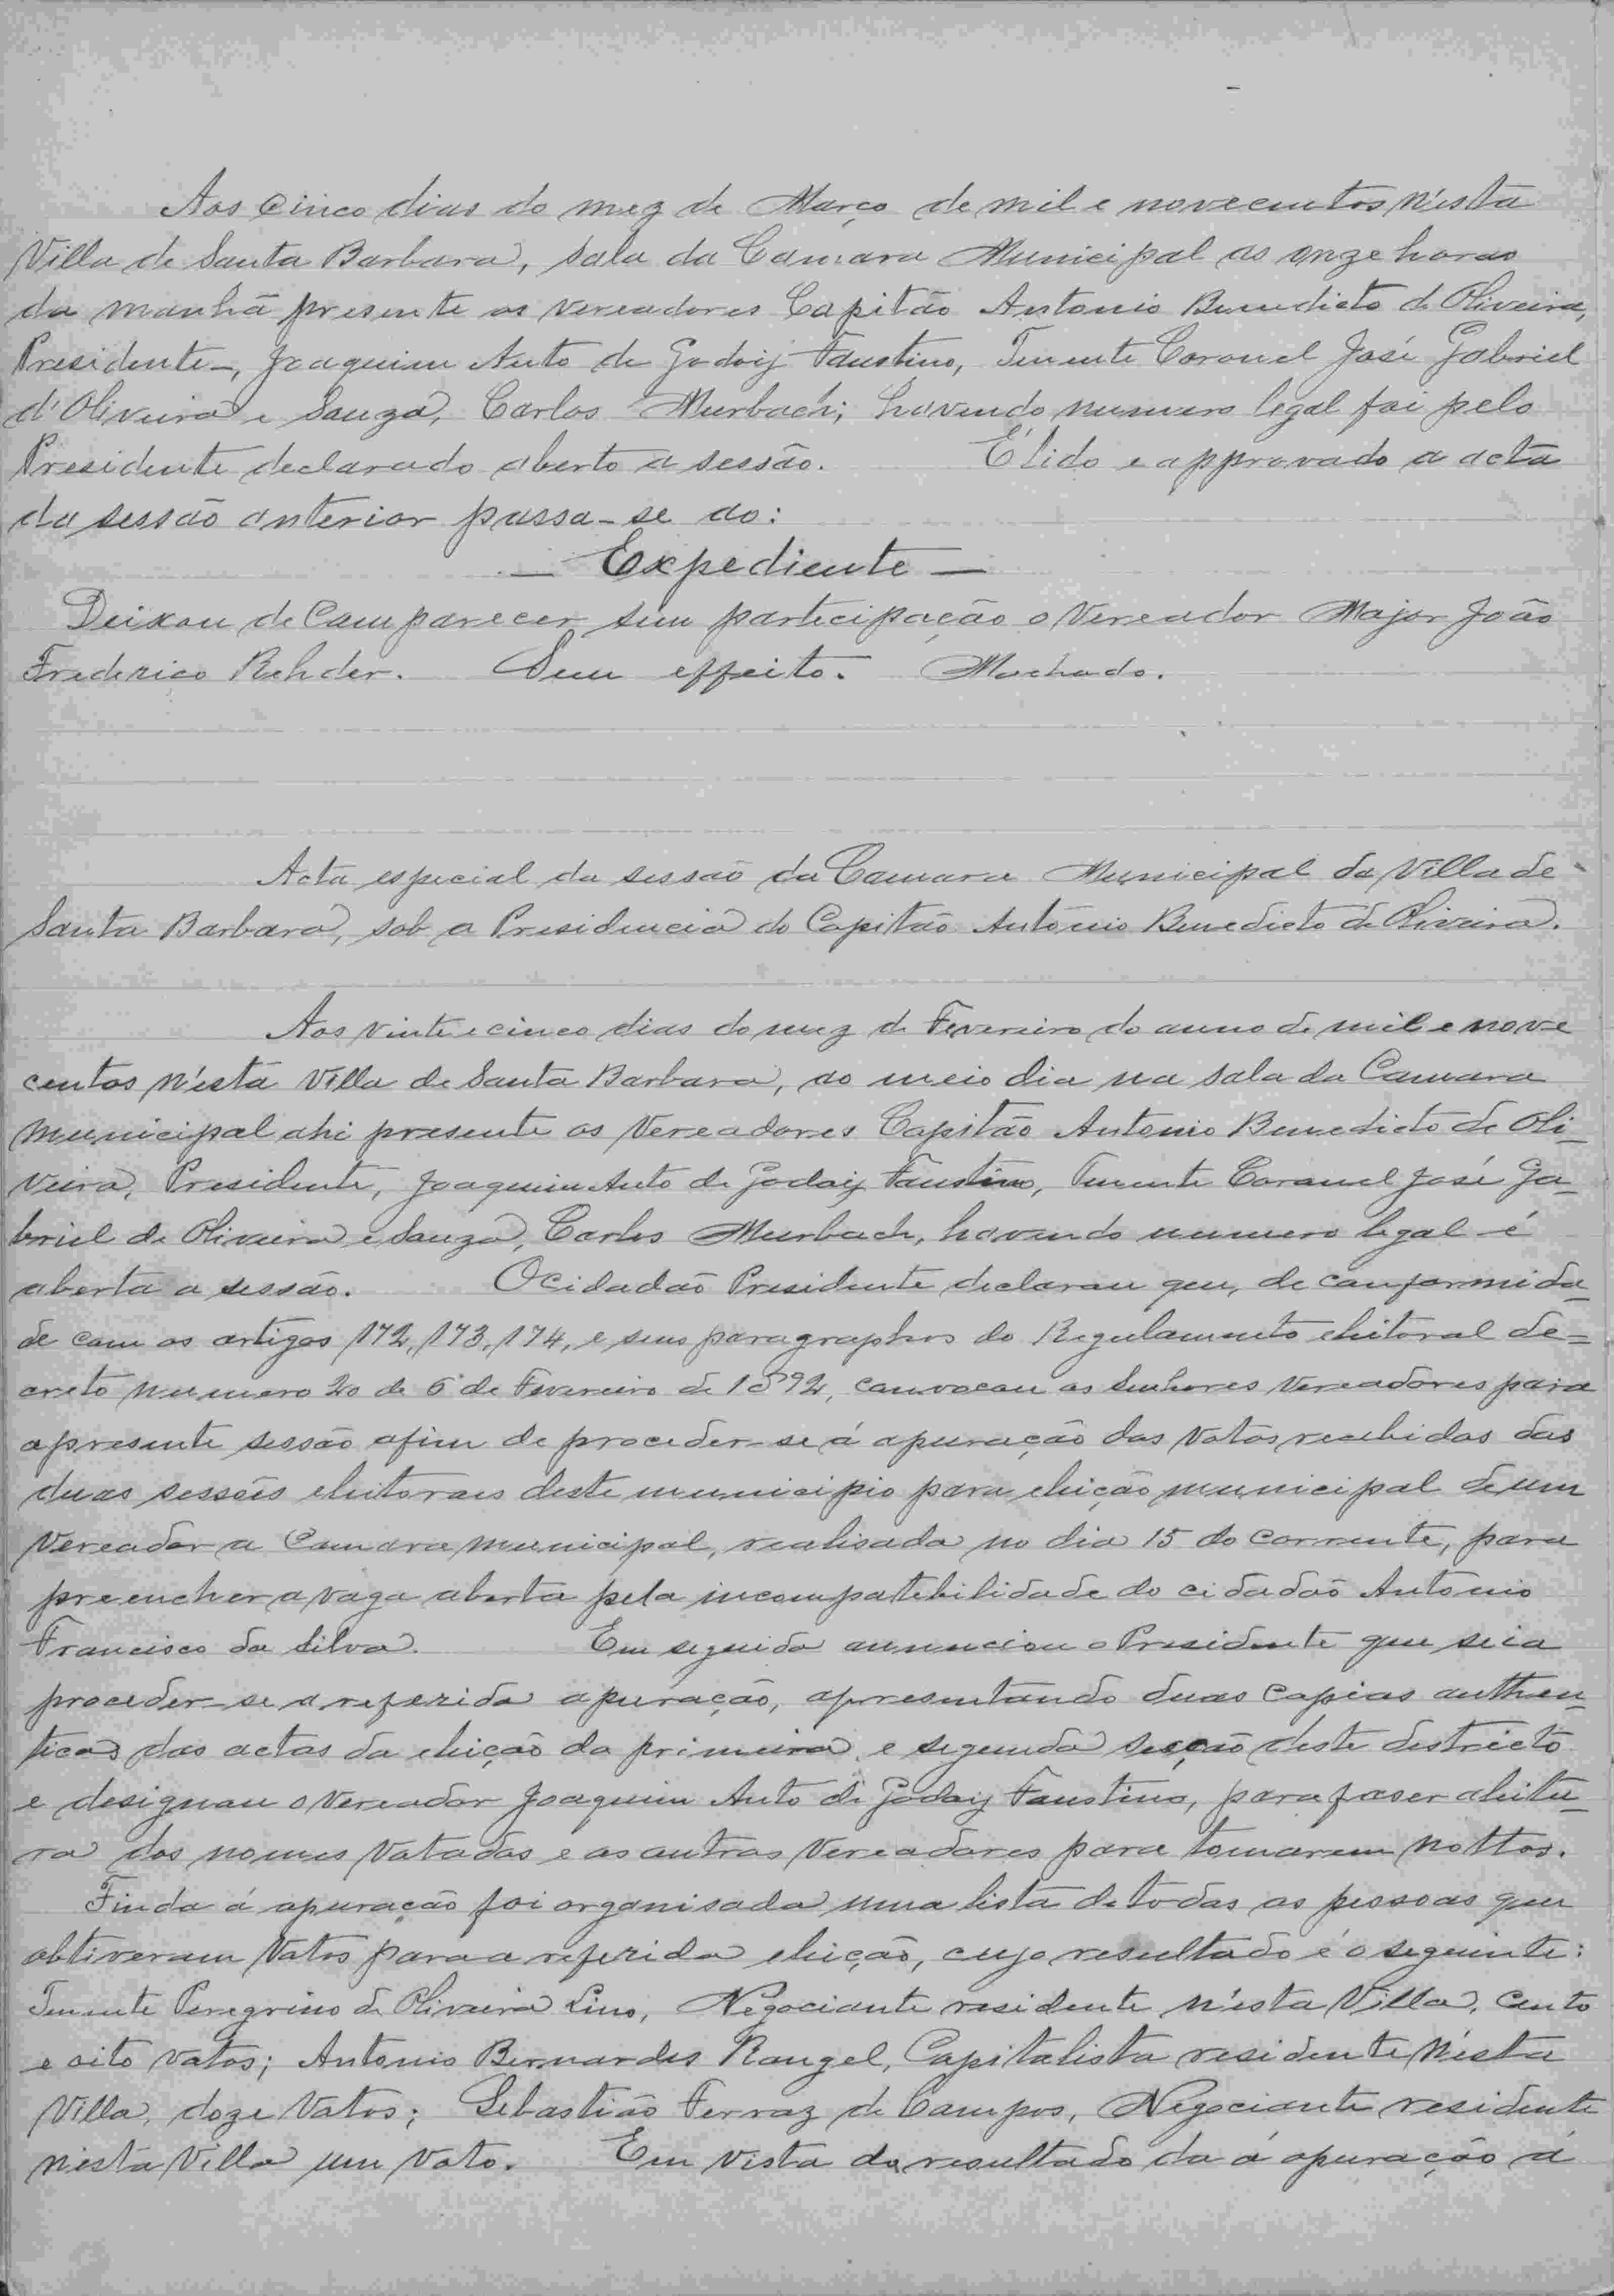 Aos cinco dias do mez de Março de mil e novecentos n'esta
Villa de Santa Barbara, sala da Camara Municipal as onze horas
da manhã presente os vereadores Capitão Antonio Benedicto de Oliveira,
Presidente, Joaquim Auto de Godoij Faustino, Tenente Coronel José Gabriel
d'Oliveira e Souza, Carlos Murbach; havendo numero legal foi pelo
Presidente declarado aberto a sessão. É lido e approvado a acta
da sessão anterior passa-se ao:
— Expediente —
Deixou de comparecer sem participação o Vereador Major João
Frederico Rehder. Sem effeito. Machado.
Acta especial da sessão da Camara Municipal da Villa de
Santa Barbara, sob a Presidencia do Capitão Antonio Benedicto de Oliveira.
Aos vinte e cinco dias do mez de Fevereiro do anno de mil e nove
centos n'esta Villa de Santa Barbara, ao meio dia na sala da Camara
Municipal ahi presente os Vereadores Capitão Antonio Benedicto de Oli-
veira, Presidente, Joaquim Auto de Godoij Faustino, Tenente Coronel José Ga-
briel de Oliveira e Souza, Carlos Murbach, havendo numero legal é
aberta a sessão. O cidadão Presidente declarou que, de conformida-
de com os artigos 172, 173, 174, e seus paragraphos do Regulamento eleitoral de-
creto numero 20 de 6 de Fevereiro de 1892, convocou os Senhores Vereadores para
apresente sessão afim de proceder-se á apuração dos votos recebidos das
duas sessões eleitoraes deste municipio para eleição municipal de um
Vereador a Camara municipal, realisada no dia 15 do corrente, para
preencher a vaga aberta pela incompatebilidade do cidadão Antonio
Francisco da Silva. Em seguida annunciou o Presidente que se ia
proceder-se a referida apuração, apresentando duas copias authen-
ticas das actas da eleição da primeira e segunda secção deste destricto
e designou o Vereador Joaquim Auto de Godoij Faustino, para faser aleitu-
ra dos nomes votados e as outros Vereadores para tomarem nottas.
Finda á apuração foi organisada uma lista de todas as pessoas que
obtiveram votos para a referida eleição, cujo resultado é o seguinte:
Tenente Peregrino de Oliveira Lino, Negociante residente n'esta Villa, cento
e oito votos; Antonio Bernardes Rangel, Capitalista residente n'esta
Villa, doze votos; Sebastião Ferraz de Campos, Negociante residente
n'esta Villa um voto. Em vista do resultado da á apuração á